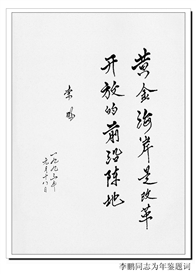 黄金海岸是改革
开放的前沿阵地
李鹏
一九九三年
元月十八日
李鹏同志为年鉴题词